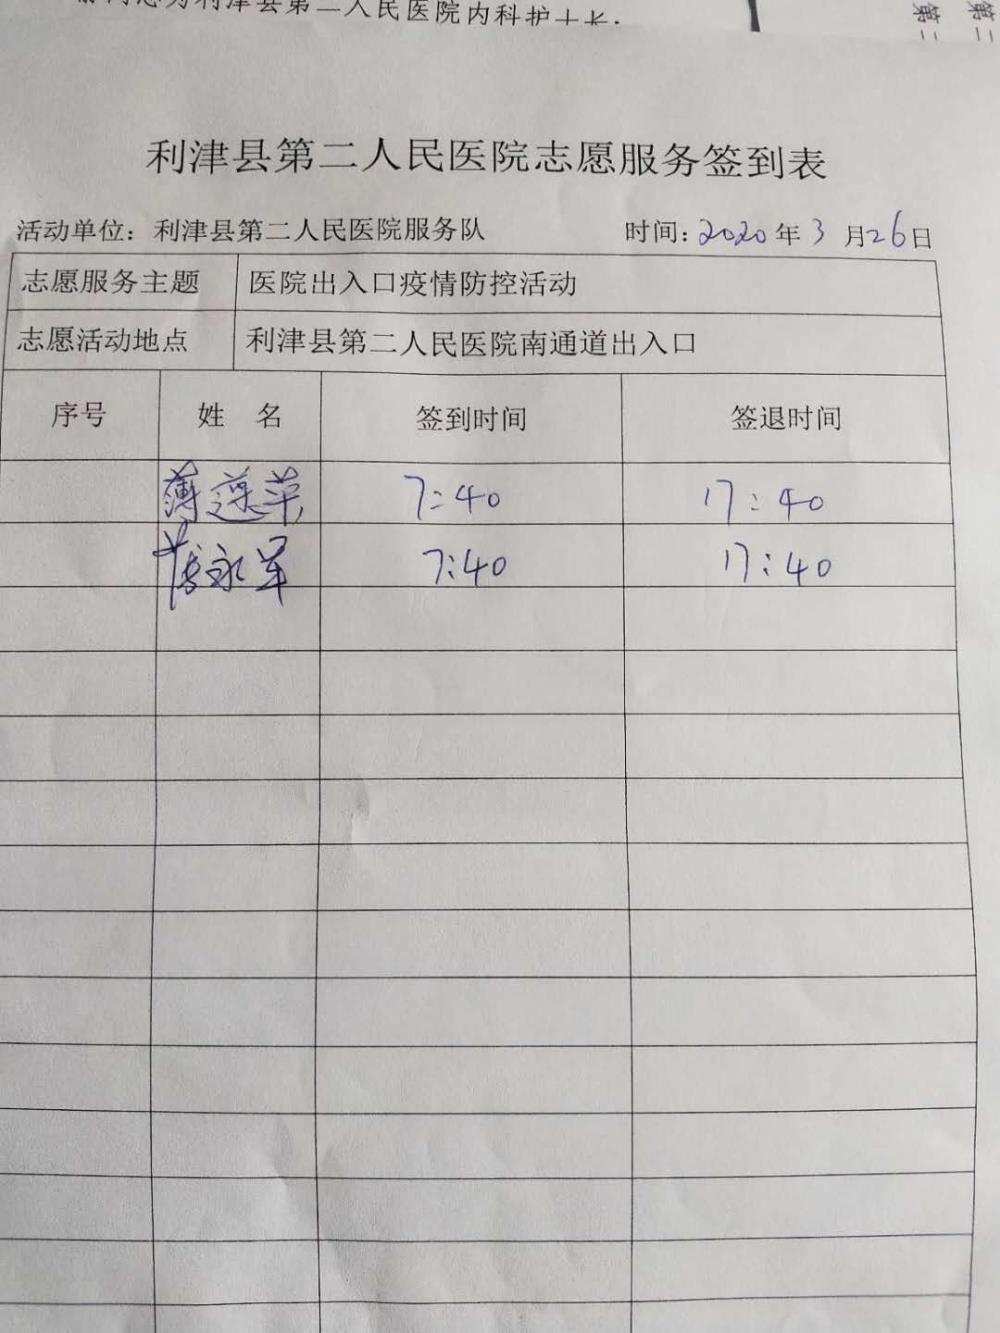 利津县第二人民医院内科护士长.
第二
第二
利津县第二人民医院志愿服务签到表
活动单位：利津县第二人民医院服务队 时间：2020年3月26日
志愿服务主题 医院出入口疫情防控活动
志愿活动地点 利津县第二人民医院南通道出入口
序号 姓 名 签到时间 签退时间
薄遵萍 7:40 17:40
薄永军 7:40 17:40